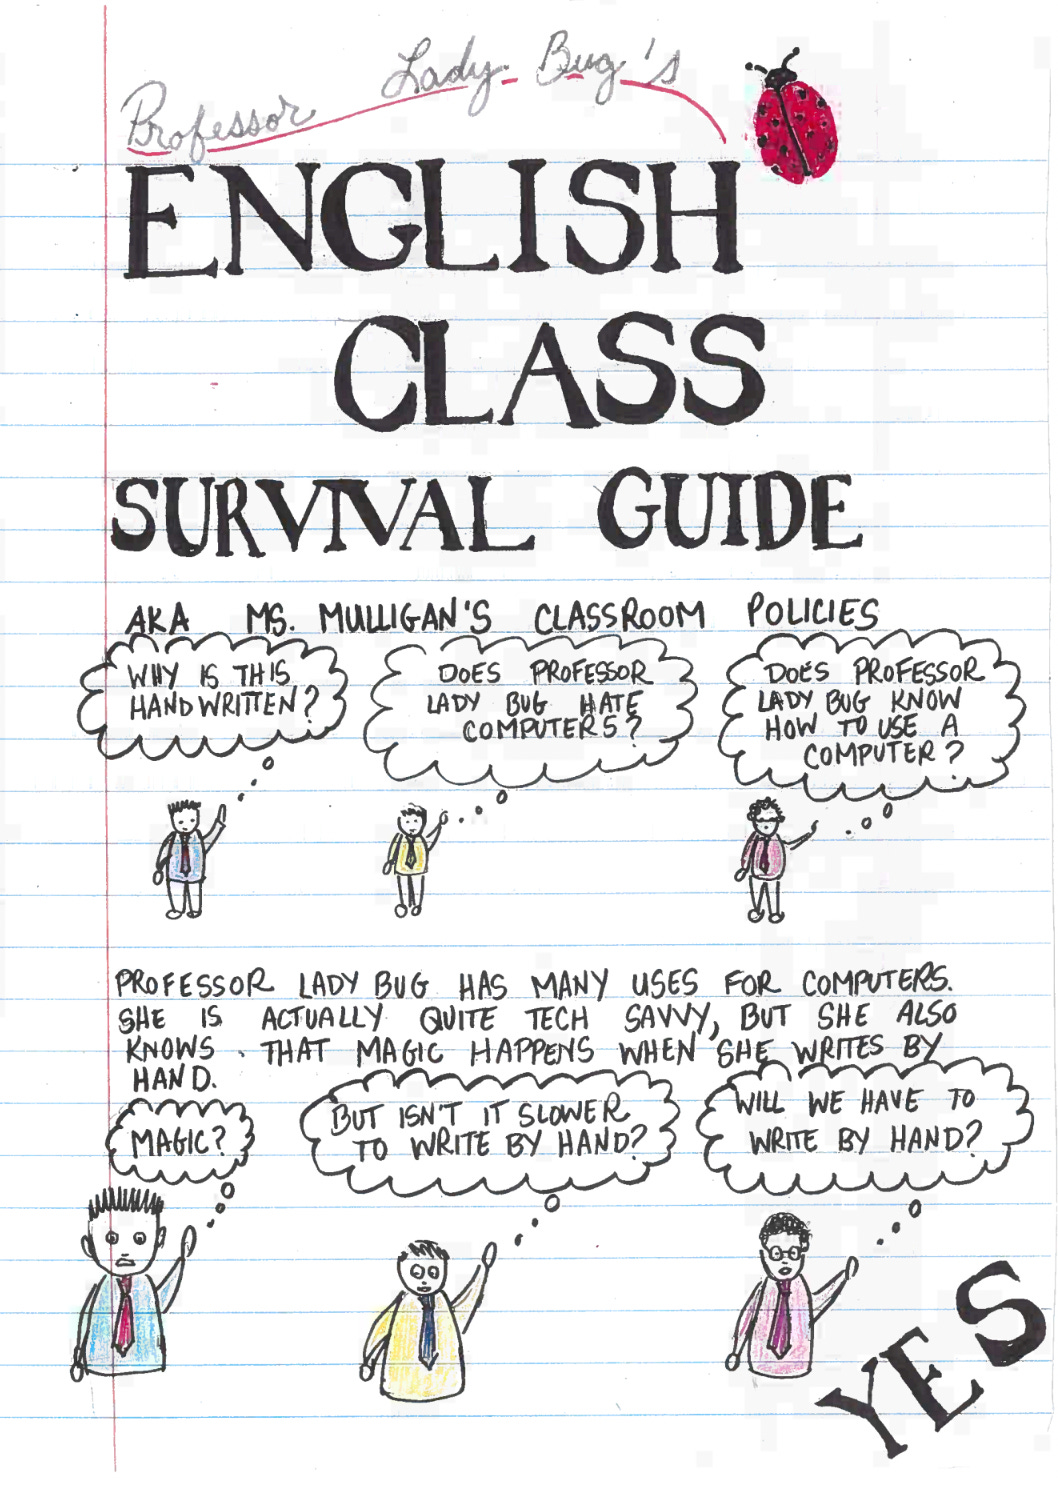 Professor Lady Bug's
ENGLISH
CLASS
SURVIVAL GUIDE
AKA MS. MULLIGAN'S CLASSROOM POLICIES
WHY IS THIS
HANDWRITTEN?
DOES PROFESSOR
LADY BUG HATE
COMPUTERS?
DOES PROFESSOR
LADY BUG KNOW
HOW TO USE A
COMPUTER?
PROFESSOR LADY BUG HAS MANY USES FOR COMPUTERS.
SHE IS ACTUALLY QUITE TECH SAVVY, BUT SHE ALSO
KNOWS THAT MAGIC HAPPENS WHEN SHE WRITES BY
HAND.
MAGIC?
BUT ISN'T IT SLOWER
TO WRITE BY HAND?
WILL WE HAVE TO
WRITE BY HAND?
YES